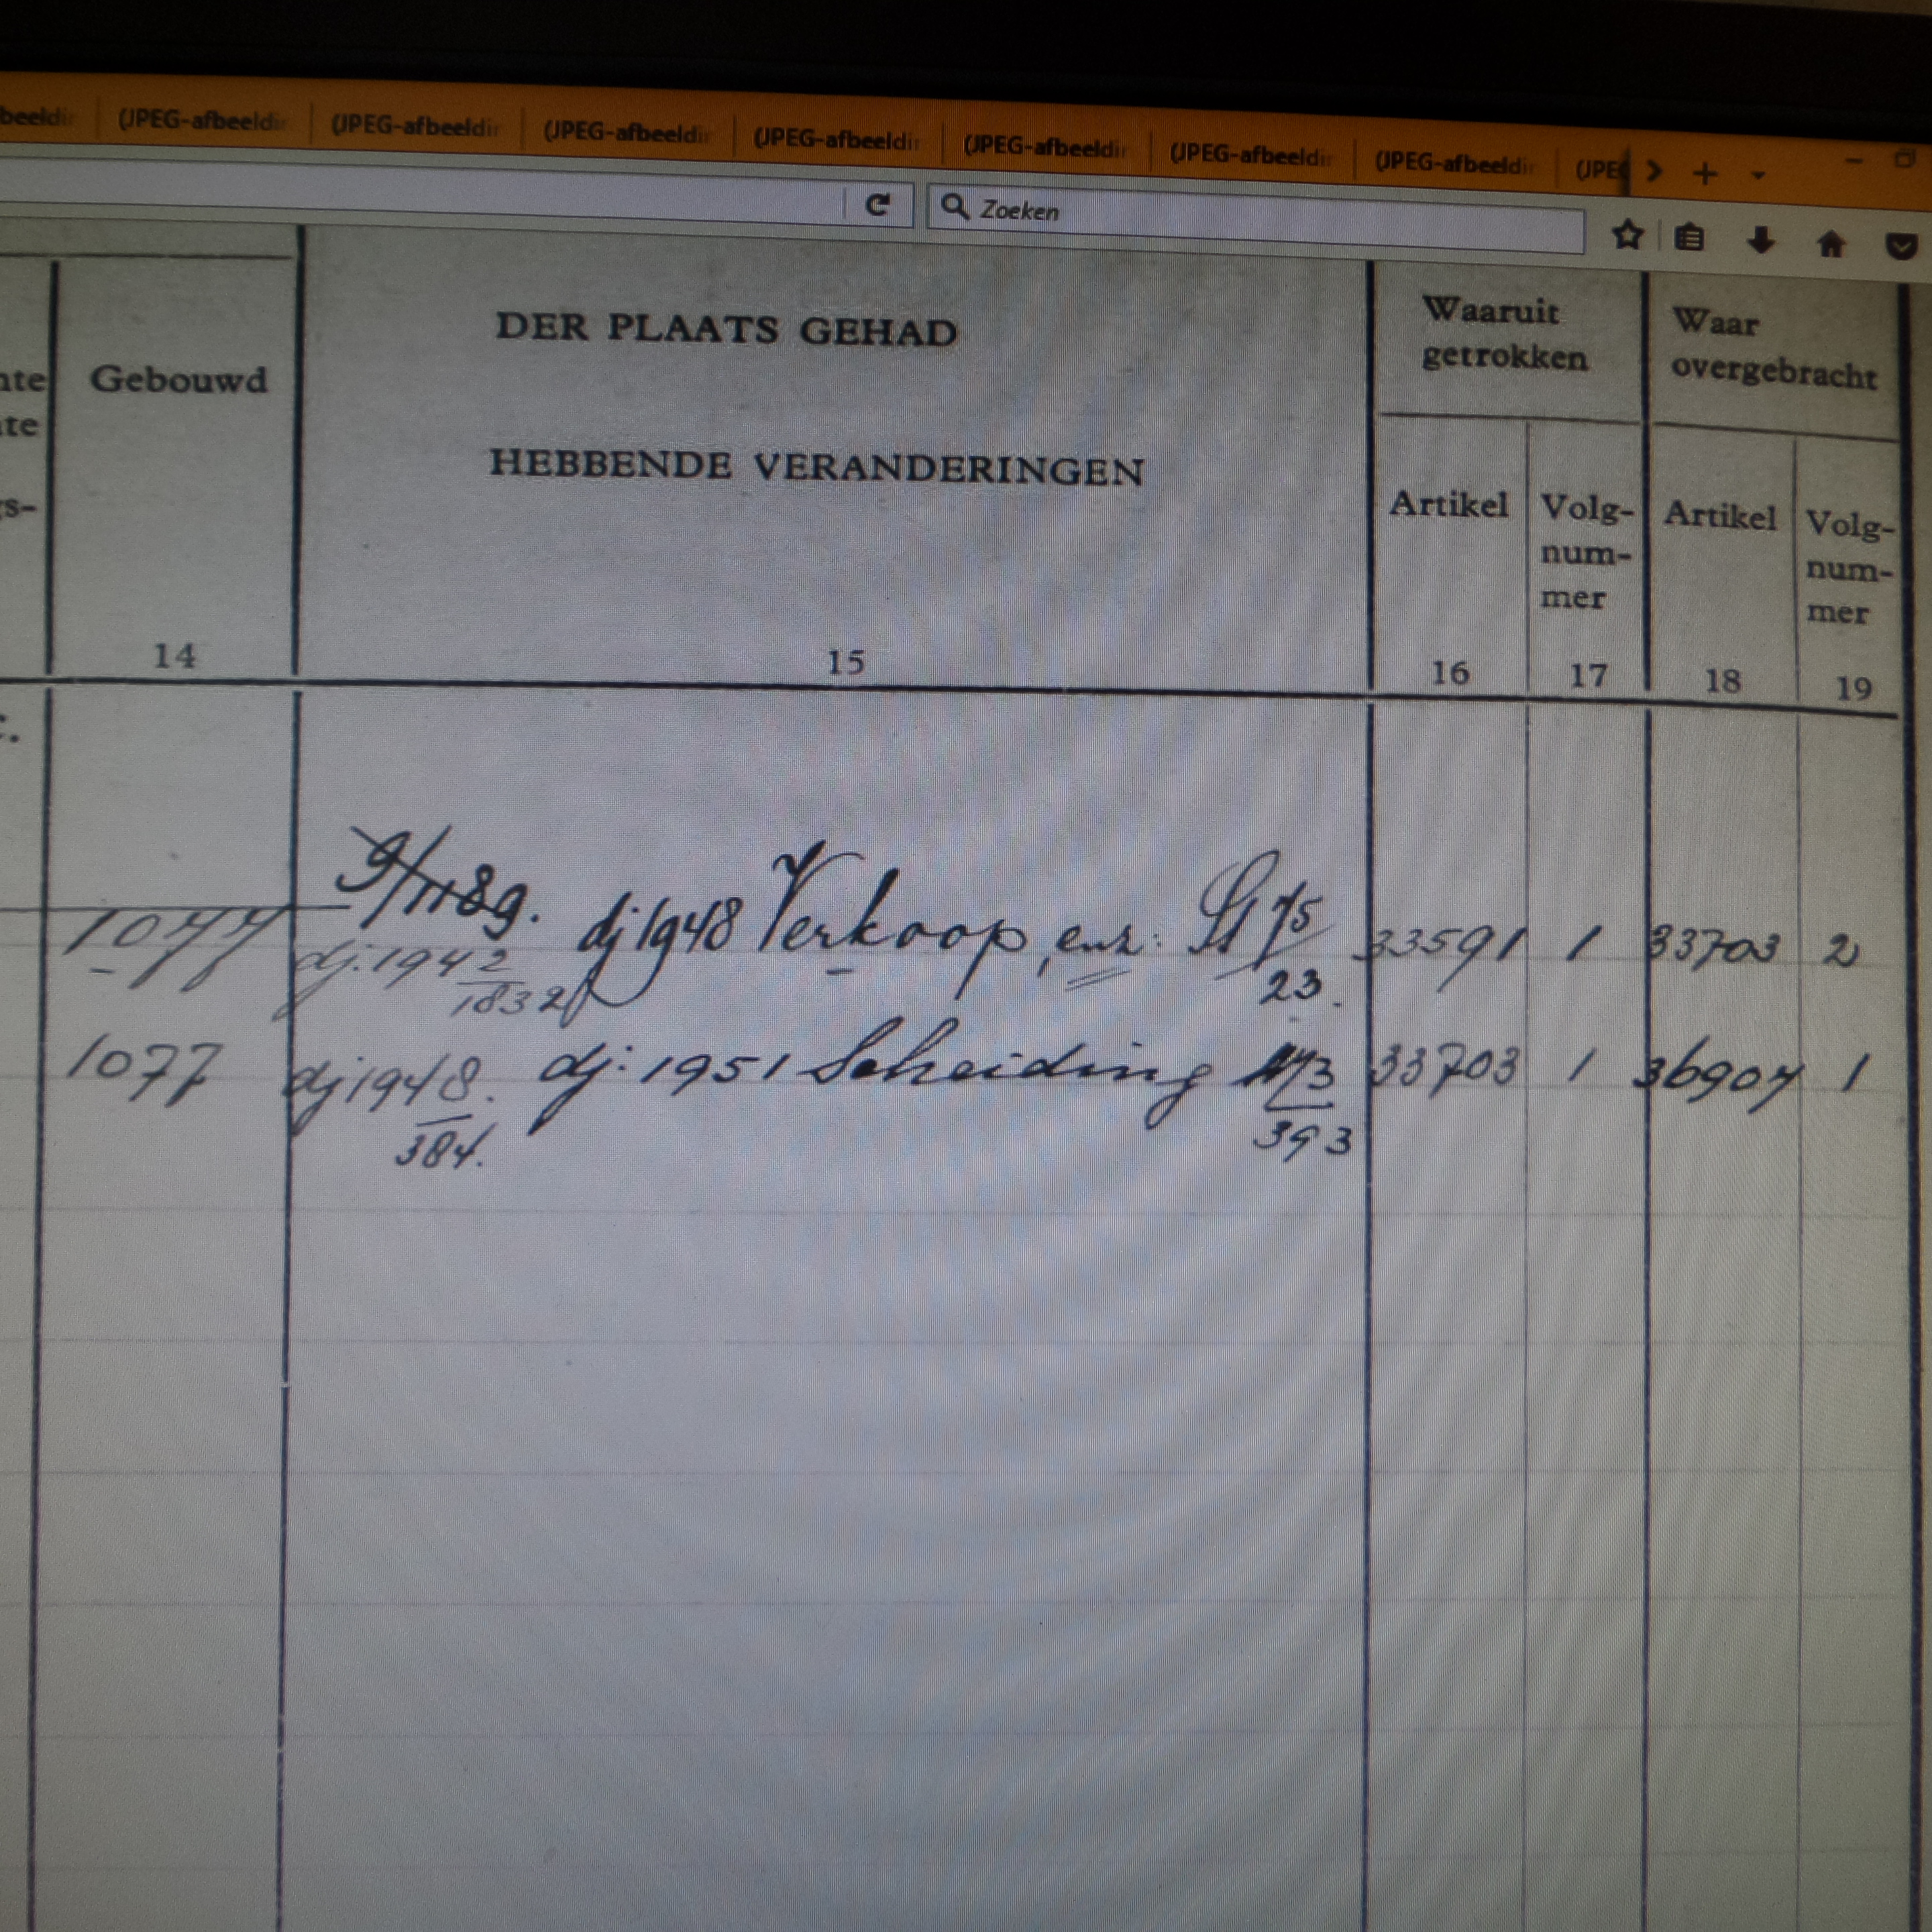 beeldir (JPEG-afbeeldir (JPEG-afbeeldir (JPEG-afbeeldir (JPEG-afbeeldir (JPEG-afbeeldir (JPEG-afbeeldir (JPEG-afbeeldir (JPE
Zoeken
Gebouwd
14
DER PLAATS GEHAD
HEBBENDE VERANDERINGEN
15
Waaruit
getrokken
Artikel
16
Volg-
num-
mer
17
Waar
overgebracht
Artikel
18
Volg-
num-
mer
19
1077 dj. 1942 dj 1948 Verkoop, enz: 75 33591 1 33703 2
1832 23.
1077 dj 1948. dj: 1951 Scheiding 33703 1 36907 1
384. 393